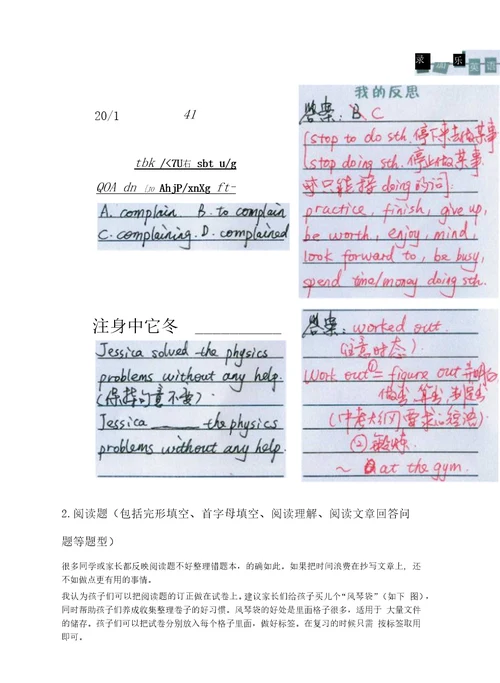 录 乐 英 语
我的反思
20/1 41
tbk /<7U右 sbt u/g
QOA dn AhjP/xnXg ft-
A. complain B. to complain
C. complaining. D. complained
答案: B C
stop to do sth. 停下来去做某事
stop doing sth. 停止做某事
可只能接 doing 的词:
practice, finish, give up,
be worth, enjoy, mind,
look forward to, be busy,
spend time/money doing sth.
注身中它冬
Jessica solved the physics
problems without any help.
(保持句意不变)
Jessica ______ the physics
problems without any help.
答案: worked out.
(注意时态)
work out ① = figure out 弄明白
做出 算出
(中考大纲要求记短语)
② 锻炼
~ at the gym.
2.阅读题（包括完形填空、首字母填空、阅读理解、阅读文章回答问
题等题型）
很多同学或家长都反映阅读题不好整理错题本，的确如此。如果把时间浪费在抄写文章上, 还
不如做点更有用的事情。
我认为孩子们可以把阅读题的订正做在试卷上。建议家长们给孩子买儿个“风琴袋”（如下 图），
同时帮助孩子们养成收集整理卷子的好习惯。风琴袋的好处是里面格子很多，适用于 大量文件
的储存。孩子们可以把试卷分别放入每个格子里面，做好标签。在复习的时候只需 按标签取用
即可。